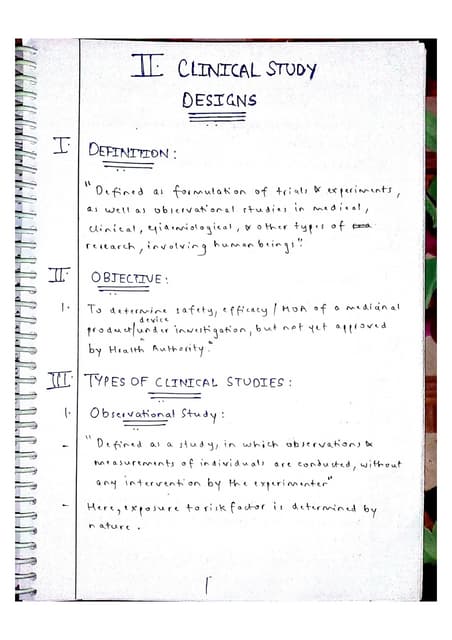 II. CLINICAL STUDY
DESIGNS
I. DEFINITION :
"Defined as formulation of trials & experiments,
as well as observational studies in medical,
clinical, epidemiological, & other types of
research, involving human beings".
II. OBJECTIVE :
1. To determine safety, efficacy / MOA of a medicinal
device
product/under investigation, but not yet approved
by Health Authority."
III. TYPES OF CLINICAL STUDIES :
1. Observational Study :
- "Defined as a study, in which observations &
measurements of individuals are conducted, without
any intervention by the experimenter"
- Here, exposure to risk factor is determined by
nature.
1